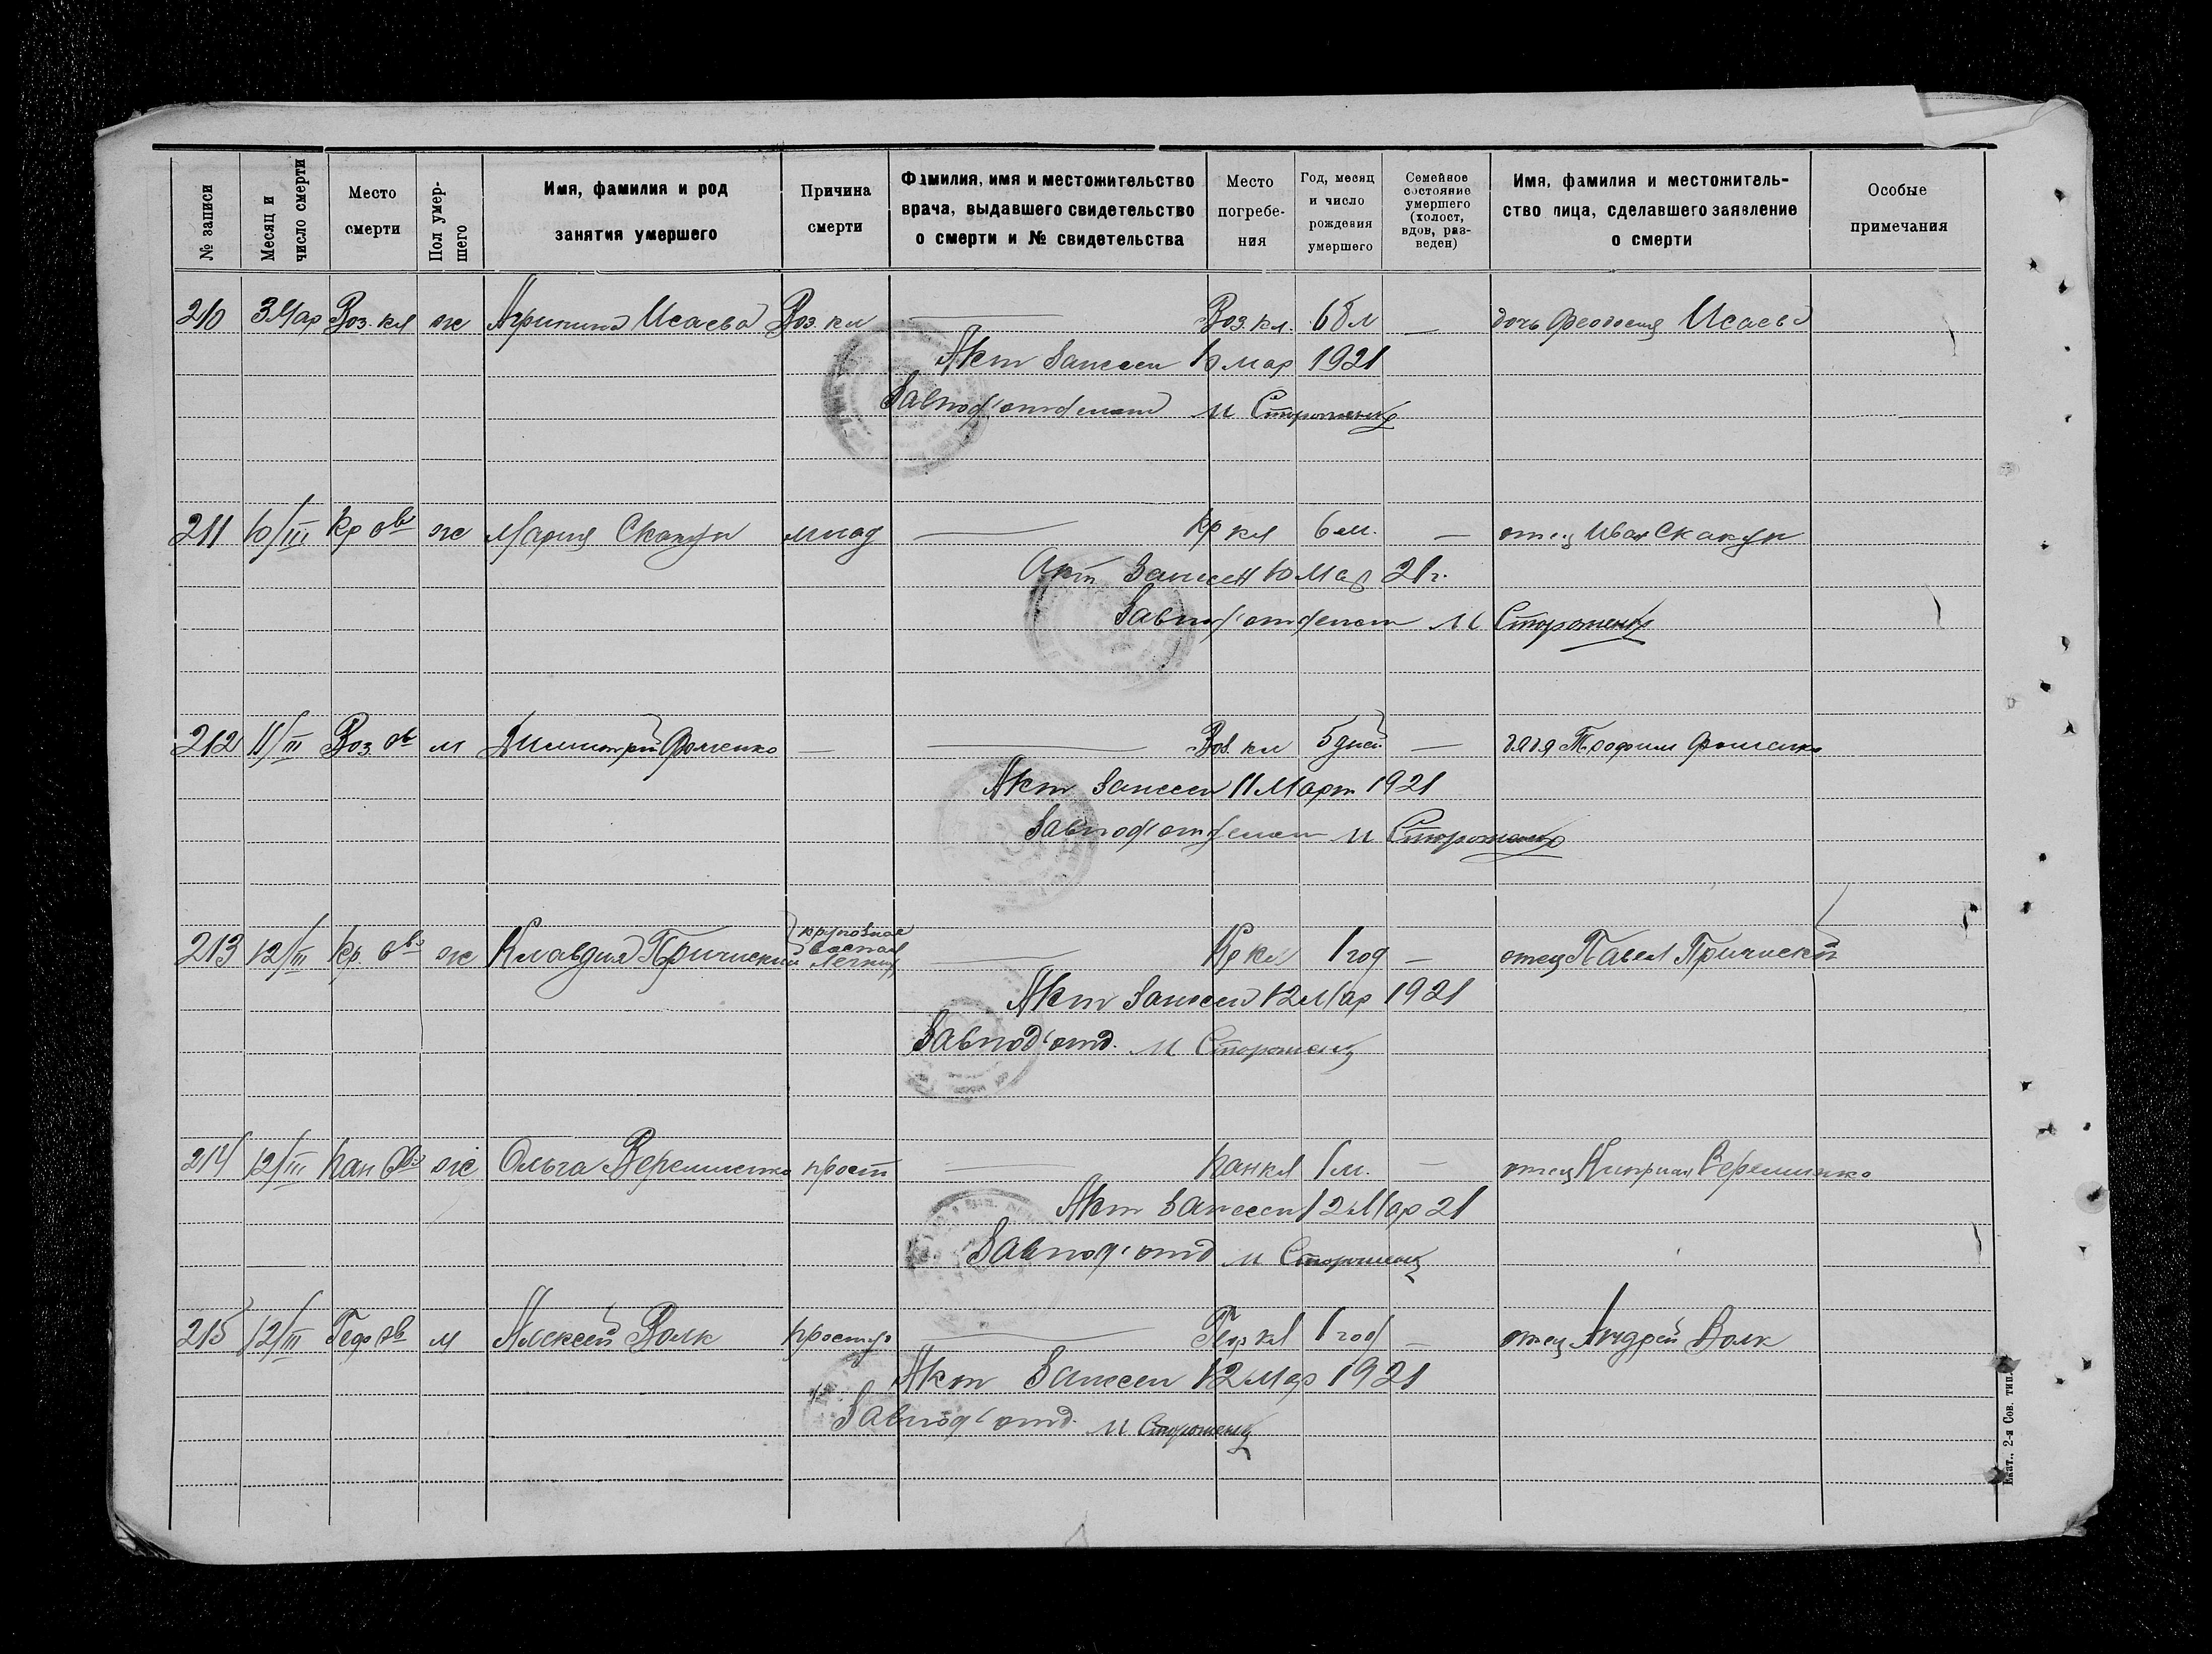 № записи | Месяц и число смерти | Место смерти | Пол умер- шего | Имя, фамилия и род занятия умершего | Причина смерти | Фамилия, имя и местожительство врача, выдавшего свидетельство о смерти и № свидетельства | Место погребе- ния | Год, месяц и число рождения умершего | Семейное состояние умершего (холост, вдов, раз- веден) | Имя, фамилия и местожитель- ство лица, сделавшего заявление о смерти | Особые примечания
210 3 Мар Воз. кл ж Агрипина Исаева Воз. кл — Воз. кл. 68 л — дочь Феодосия Исаева
Акт Занесен 10 мар 1921
Завпод'отделом М Стороженко
211 10/III Кр ов ж Мария Скакун млад — Кр кл 6 м. — отец Иван Скакун
Акт Занесен 10 Мар 21 г.
Завпод'отделом М Стороженко
212 11/III Воз. ов м Димитрий Фоменко — — Воз. кл 5 дней — дядя Трофим Фоменко
Акт Занесен 11 Март 1921
Завпод'отделом М Стороженко
213 12/III Кр. ов ж Клавдия Причиский крупозное воспал Легких — Кр кл 1 год — отец Павел Причиский
Акт Занесен 12 Мар 1921
Завпод'отд. М Стороженко
214 12/III Кан ов ж Ольга Веремиенко прост — Кан кл 1 м. — отец Киприан Веремиенко
Акт Занесен 12 Мар 21
Завпод'отд М Стороженко
215 12/III Геор ов м Алексей Волк простуд — Геор кл 1 год — отец Андрей Волк
Акт Занесен 12 Мар 1921
Завпод'отд. М Стороженко
Екат., 2-я Сов. тип.